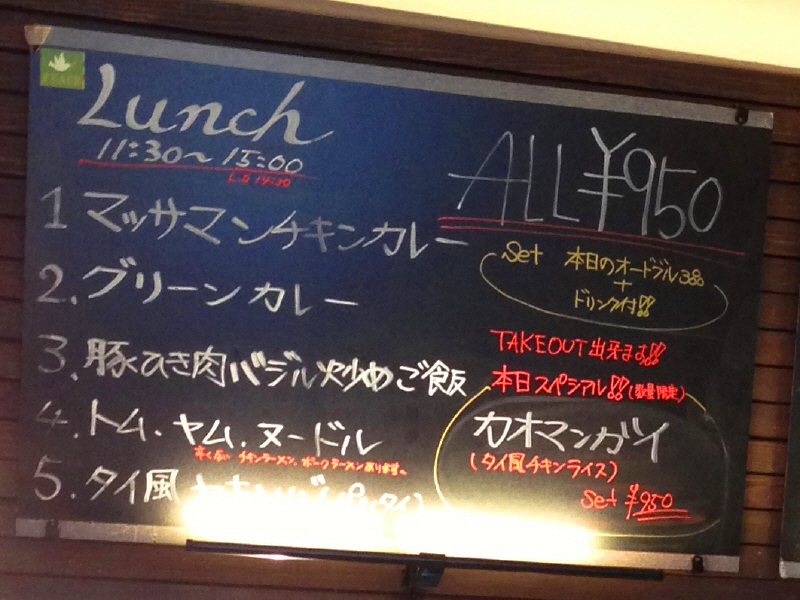 Lunch
11:30~15:00
L.O 14:30
ALL ¥950
1 マッサマンチキンカレー
2. グリーンカレー
3. 豚ひき肉バジル炒めご飯
4. トム.ヤム.ヌードル
辛くない チキンラーメン、ポークラーメンあります。
5. タイ風
Set 本日のオードブル3品
+
ドリンク付!!
TAKEOUT出来ます!!
本日スペシャル!!(数量限定)
カオマンガイ
(タイ風チキンライス)
Set ¥950